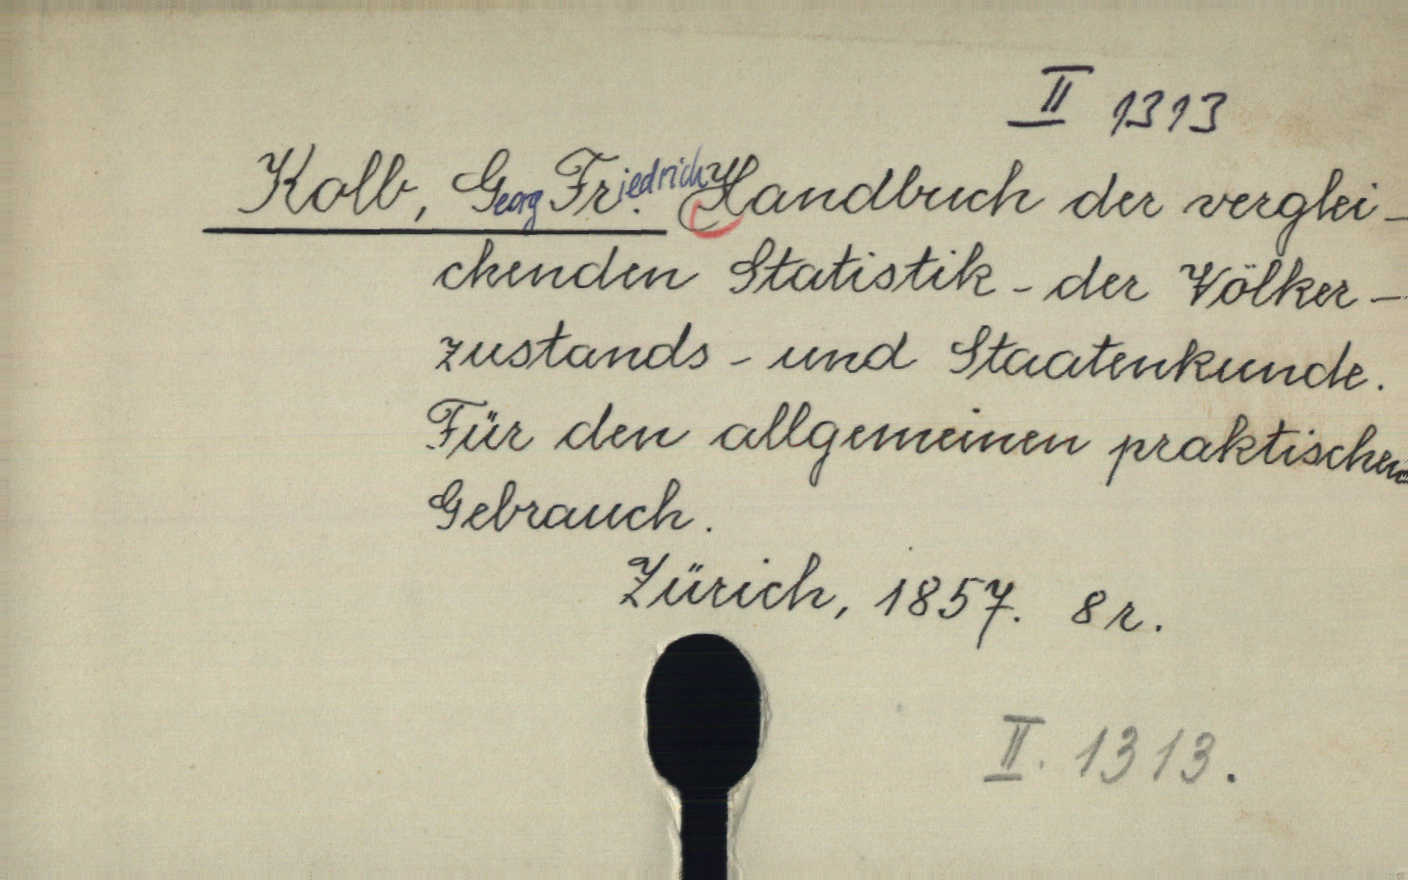 II 1313
Kolb, Georg Friedrich Handbuch der verglei-
chenden Statistik - der Völker-
zustands - und Staatenkunde.
Für den allgemeinen praktischen
Gebrauch.
Zürich, 1857. 8r.
II. 1313.